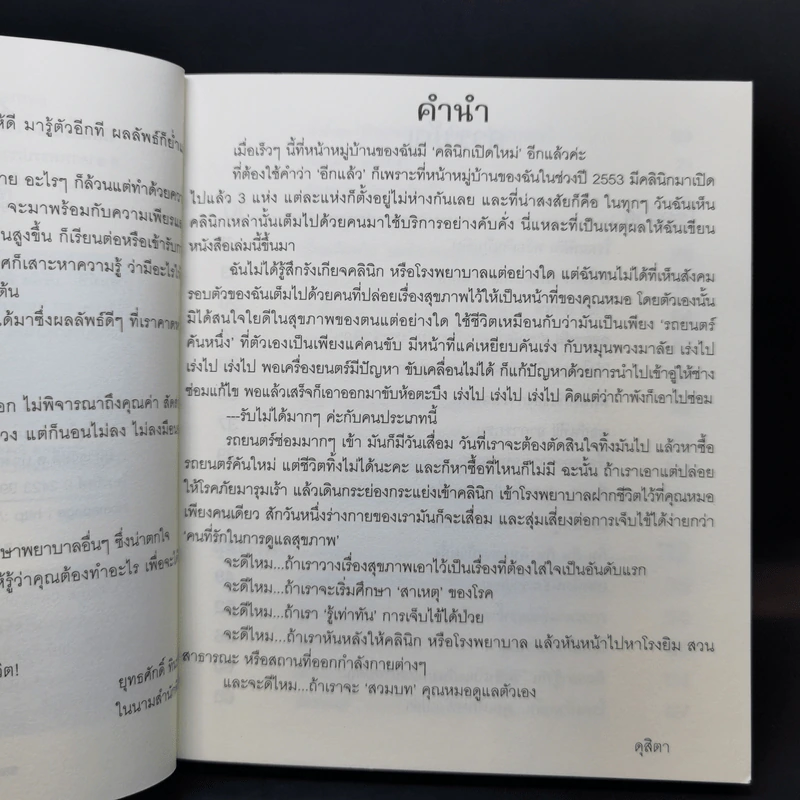 ห้ดี มารู้ตัวอีกที ผลลัพธ์ก็ย่ำแ
าย อะไรๆ ก็ล้วนแต่ทำด้วยคว
จะมาพร้อมกับความเพียรแ
นสูงขึ้น ก็เรียนต่อหรือเข้ารับก
ศก็เสาะหาความรู้ ว่ามีอะไร
ต้น
ด้มาซึ่งผลลัพธ์ดีๆ ที่เราคาด
อก ไม่พิจารณาถึงคุณค่า
วง แต่ก็นอนไม่ลง ไม่ลงมือ
ษาพยาบาลอื่นๆ ซึ่งน่าตกใจ
ห้รู้ว่าคุณต้องทำอะไร เพื่อจะ
ิต!
ยุทธศักดิ์
ในนามสำนัก
คำนำ
เมื่อเร็วๆ นี้ที่หน้าหมู่บ้านของฉันมี 'คลินิกเปิดใหม่' อีกแล้วค่ะ
ที่ต้องใช้คำว่า 'อีกแล้ว' ก็เพราะที่หน้าหมู่บ้านของฉันในช่วงปี 2553 มีคลินิกมาเปิด
ไปแล้ว 3 แห่ง แต่ละแห่งก็ตั้งอยู่ไม่ห่างกันเลย และที่น่าสงสัยก็คือ ในทุกๆ วันฉันเห็น
คลินิกเหล่านั้นเต็มไปด้วยคนมาใช้บริการอย่างคับคั่ง นี่แหละที่เป็นเหตุผลให้ฉันเขียน
หนังสือเล่มนี้ขึ้นมา
ฉันไม่ได้รู้สึกรังเกียจคลินิก หรือโรงพยาบาลแต่อย่างใด แต่ฉันทนไม่ได้ที่เห็นสังคม
รอบตัวของฉันเต็มไปด้วยคนที่ปล่อยเรื่องสุขภาพไว้ให้เป็นหน้าที่ของคุณหมอ โดยตัวเองนั้น
มิได้สนใจใยดีในสุขภาพของตนแต่อย่างใด ใช้ชีวิตเหมือนกับว่ามันเป็นเพียง 'รถยนตร์
คันหนึ่ง' ที่ตัวเองเป็นเพียงแค่คนขับ มีหน้าที่แค่เหยียบคันเร่ง กับหมุนพวงมาลัย เร่งไป
เร่งไป เร่งไป พอเครื่องยนตร์มีปัญหา ขับเคลื่อนไม่ได้ ก็แก้ปัญหาด้วยการนำไปเข้าอู่ให้ช่าง
ซ่อมแก้ไข พอแล้วเสร็จก็เอาออกมาขับห้อตะบึง เร่งไป เร่งไป เร่งไป คิดแต่ว่าถ้าพังก็เอาไปซ่อม
---รับไม่ได้มากๆ ค่ะกับคนประเภทนี้
รถยนตร์ซ่อมมากๆ เข้า มันก็มีวันเสื่อม วันที่เราจะต้องตัดสินใจทิ้งมันไป แล้วหาซื้อ
รถยนตร์คันใหม่ แต่ชีวิตทิ้งไม่ได้นะคะ และก็หาซื้อที่ไหนก็ไม่มี ฉะนั้น ถ้าเราเอาแต่ปล่อย
ให้โรคภัยมารุมเร้า แล้วเดินกระย่องกระแย่งเข้าคลินิก เข้าโรงพยาบาลฝากชีวิตไว้ที่คุณหมอ
เพียงคนเดียว สักวันหนึ่งร่างกายของเรามันก็จะเสื่อม และสุ่มเสี่ยงต่อการเจ็บไข้ได้ง่ายกว่า
'คนที่รักในการดูแลสุขภาพ'
จะดีไหม...ถ้าเราวางเรื่องสุขภาพเอาไว้เป็นเรื่องที่ต้องใส่ใจเป็นอันดับแรก
จะดีไหม...ถ้าเราจะเริ่มศึกษา 'สาเหตุ' ของโรค
จะดีไหม...ถ้าเรา 'รู้เท่าทัน' การเจ็บไข้ได้ป่วย
จะดีไหม...ถ้าเราหันหลังให้คลินิก หรือโรงพยาบาล แล้วหันหน้าไปหาโรงยิม สวน
สาธารณะ หรือสถานที่ออกกำลังกายต่างๆ
และจะดีไหม...ถ้าเราจะ 'สวมบท' คุณหมอดูแลตัวเอง
ดุสิตา